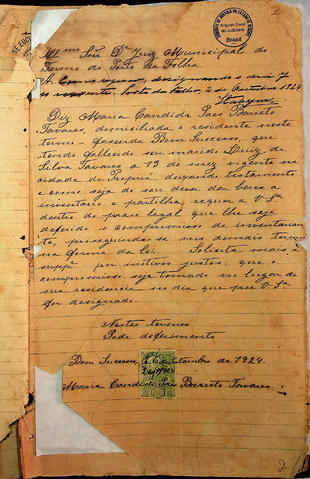 Illmo Snr. Dr. Juiz Municipal do
Termo do Porto da Folha
A. Como requer, designando o dia 7
Porto da Folha, 2 de Outubro 1924
Diz Maria Candida Paes Barreto
Tavares, domiciliada e residente neste
termo - fasenda Bom Sucesso, que
tendo fallecido seu marido Luiz da
Silva Tavares a 13 do mez vigente na
cidade de Propriá, deixando testamento
e como seja de seu dever dar bens a
inventario e partilha, requer a V. Sª
dentro do praso legal que lhe seja
deferido o compromisso de inventarian
te, proseguindo-se nos demais termos
na forma da lei. Solicita mais a
suppe por motivos justos, que o
compromisso seja tomado no lugar de
sua residencia no dia que por V. Sª
for designado.
Nestes termos
Pede deferimento
Bom Sucesso, 26 de Setembro de 1924.
Maria Candida Paes Barreto Tavares.
Brasil
2